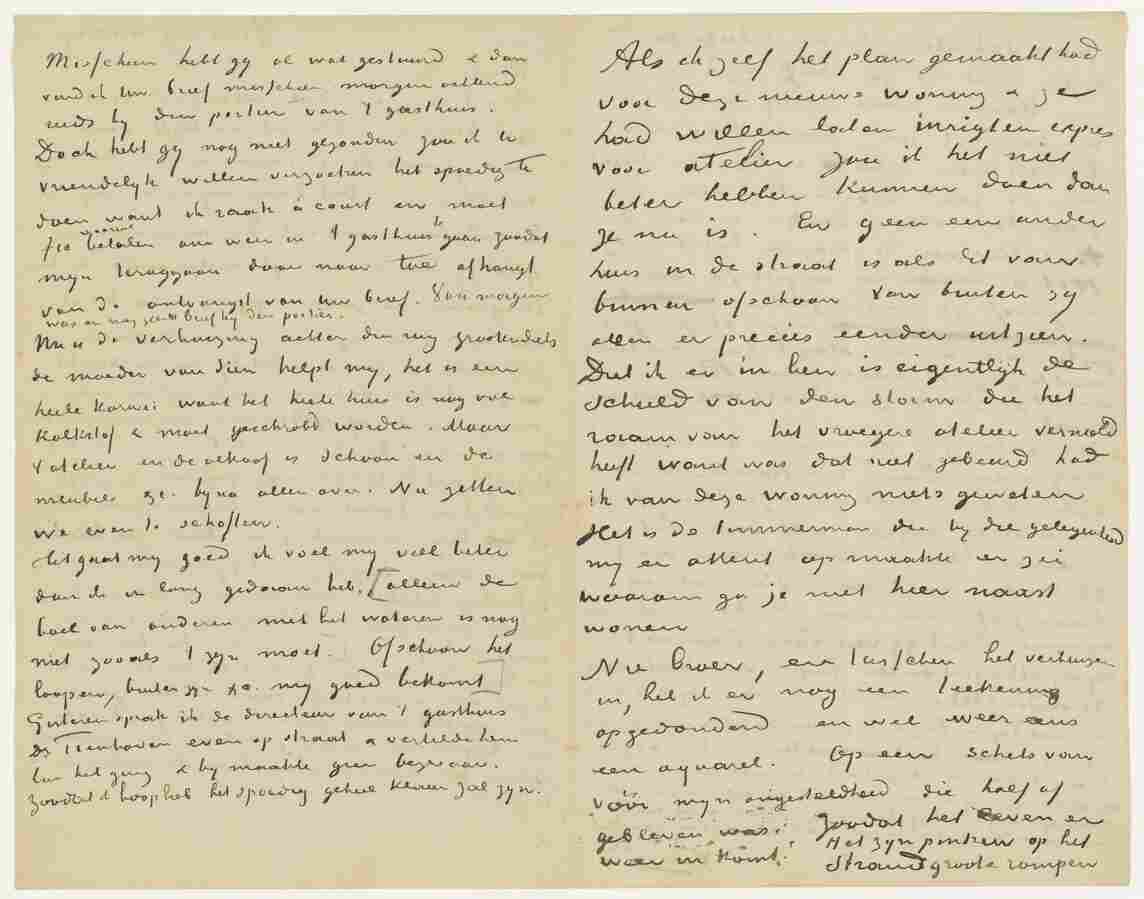 Misschien hebt gij al wat gestuurd & dan
vond ik Uw. brief misschien morgen ochtend
reeds bij den portier van 't gasthuis.
Doch hebt gij nog niet gezonden zou ik U
vriendelijk willen verzoeken het spoedig te
doen want ik raak à court en moet
f10 vooruit betalen om weer in 't gasthuis te gaan zoodat
mijn teruggaan daar naar toe afhangt
van de ontvangst van Uw brief. Van morgen
was er nog geen brief bij den portier.
Nu is de verhuizing achter den rug grootendeels
de moeder van Sien helpt mij, het is een
heele karwei want het heele huis is nog vol
kalkstof & moet geschrobd worden. Maar
't atelier en de alkoof is schoon en de
meubels zijn bijna allen over. Nu zitten
we even te schoften.
Het gaat mij goed ik voel mij veel beter
dan ik in lang gedaan heb, [alleen de
boel van onderen met het wateren is nog
niet zooals 't zijn moet. Ofschoon het
loopen, buiten zijn &c. mij goed bekomt]
Gisteren sprak ik de directeur van 't gasthuis
Dr Tienhoven even op straat & vertelde hem
hoe het ging & hij maakte geen bezwaar.
zoodat ik hoop heb het spoedig geheel klaar zal zijn.
Als ik zelf het plan gemaakt had
voor deze nieuwe woning & ze
had willen laten inrigten expres
voor atelier zou ik het niet
beter hebben kunnen doen dan
ze nu is. En geen een ander
huis in de straat is als dit van
binnen ofschoon van buiten zij
allen er precies eender uitzien.
Dat ik er in ben is eigentlijk de
schuld van den storm die het
raam van het vroegere atelier vernield
heeft want was dat niet gebeurd had
ik van deze woning niets geweten
Het is de timmerman die bij die gelegenheid
mij er attent op maakte er zei
waarom ga je niet hier naast
wonen
Nu broer, en tusschen het verhuizen
in, heb ik er nog een teekening
opgedonderd en wel weer eens
een aquarel. Op een schets van
vóór mijn ongesteldheid die half af
gebleven was. zoodat het leven er
weer in komt. Het zijn pinken op het
strand groote rompen